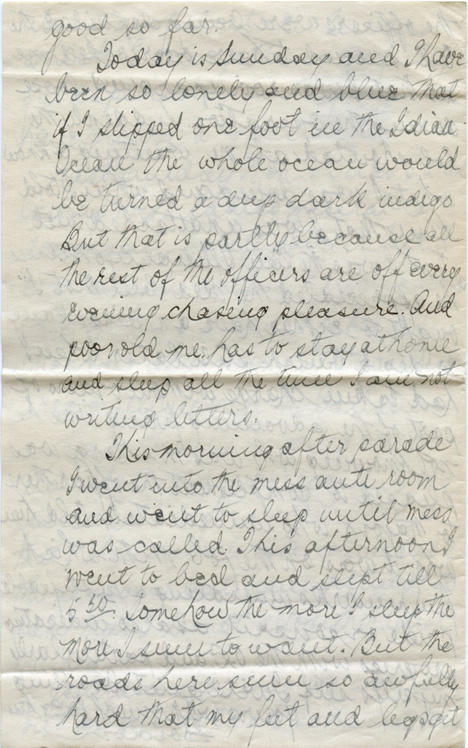 good so far.
Today is Sunday and I have
been so lonely and blue that
if I slipped one foot in the Idian
Ocean the whole ocean would
be turned a dup dark indigo
But that is partly because all
the rest of the officers are off every
evening chasing pleasure. And
poor old me has to stay at home
and sleep all the time I am not
writing letters.
This morning after parade
I went into the mess ante room
and went to sleep until mess
was called. This afternoon I
went to bed and slept till
5 30. Somehow the more I sleep the
more I seem to want. But the
roads here seem so awfully
hard that my feet and legs get